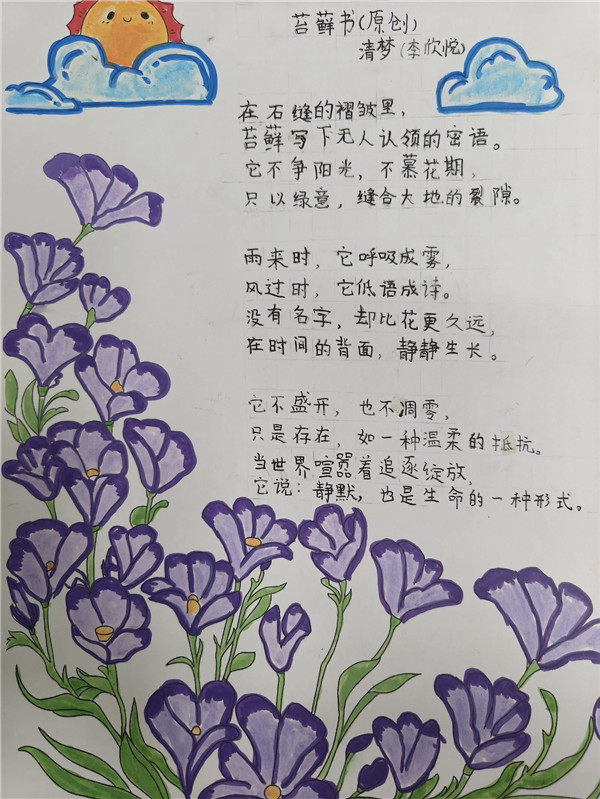 苔藓书(原创)
清梦(李欣悦)
在石缝的褶皱里，
苔藓写下无人认领的密语。
它不争阳光，不慕花期，
只以绿意，缝合大地的裂隙。
雨来时，它呼吸成雾，
风过时，它低语成诗。
没有名字，却比花更久远，
在时间的背面，静静生长。
它不盛开，也不凋零，
只是存在，如一种温柔的抵抗。
当世界喧嚣着追逐绽放，
它说：静默，也是生命的一种形式。